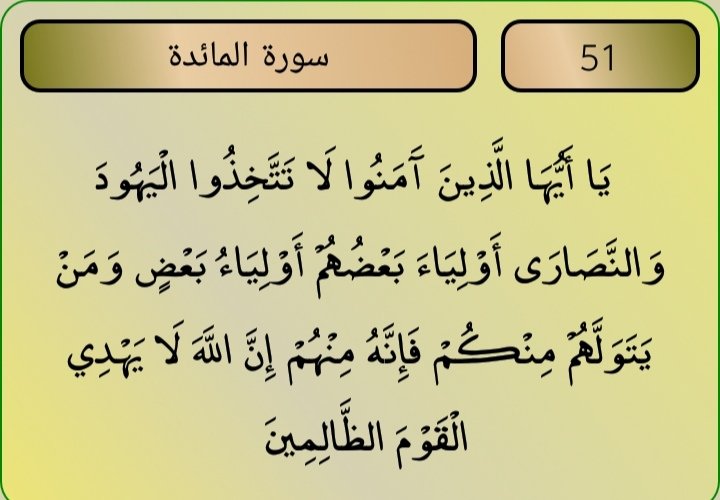 سورة المائدة 51
يَا أَيُّهَا الَّذِينَ آَمَنُوا لَا تَتَّخِذُوا الْيَهُودَ
وَالنَّصَارَى أَوْلِيَاءَ بَعْضُهُمْ أَوْلِيَاءُ بَعْضٍ وَمَنْ
يَتَوَلَّهُمْ مِنْكُمْ فَإِنَّهُ مِنْهُمْ إِنَّ اللَّهَ لَا يَهْدِي
الْقَوْمَ الظَّالِمِينَ